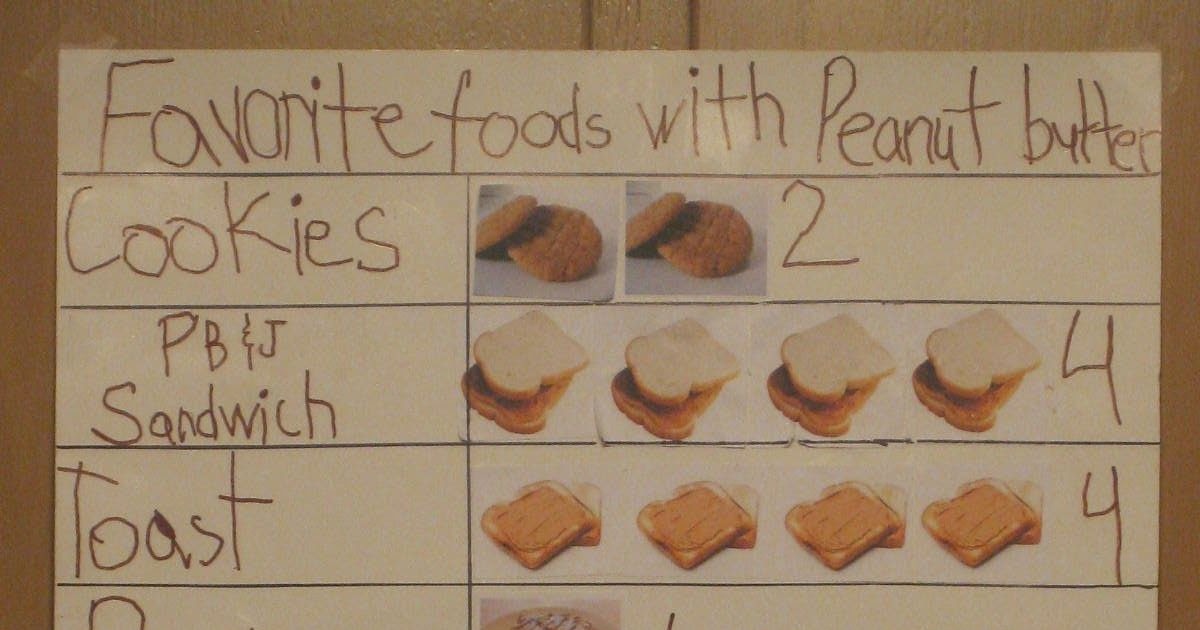 Favorite foods with Peanut butter
Cookies 2
PB&J
Sandwich 4
Toast 4